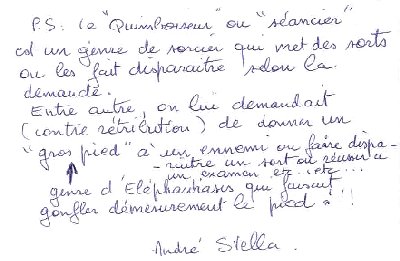 P.S: le "Quimboiseur" ou "séancier"
est un genre de sorcier qui met des sorts
ou les fait disparaitre selon la
demande.
Entre autre, on lui demandait
(contre rétribution) de donner un
"gros pied" à un ennemi ou faire dispa-
- raître un sort ou réussir à
un examen etc... etc...
genre d'Eléphantiasis que faisait
gonfler démesurement le pied !!!
André Stella.